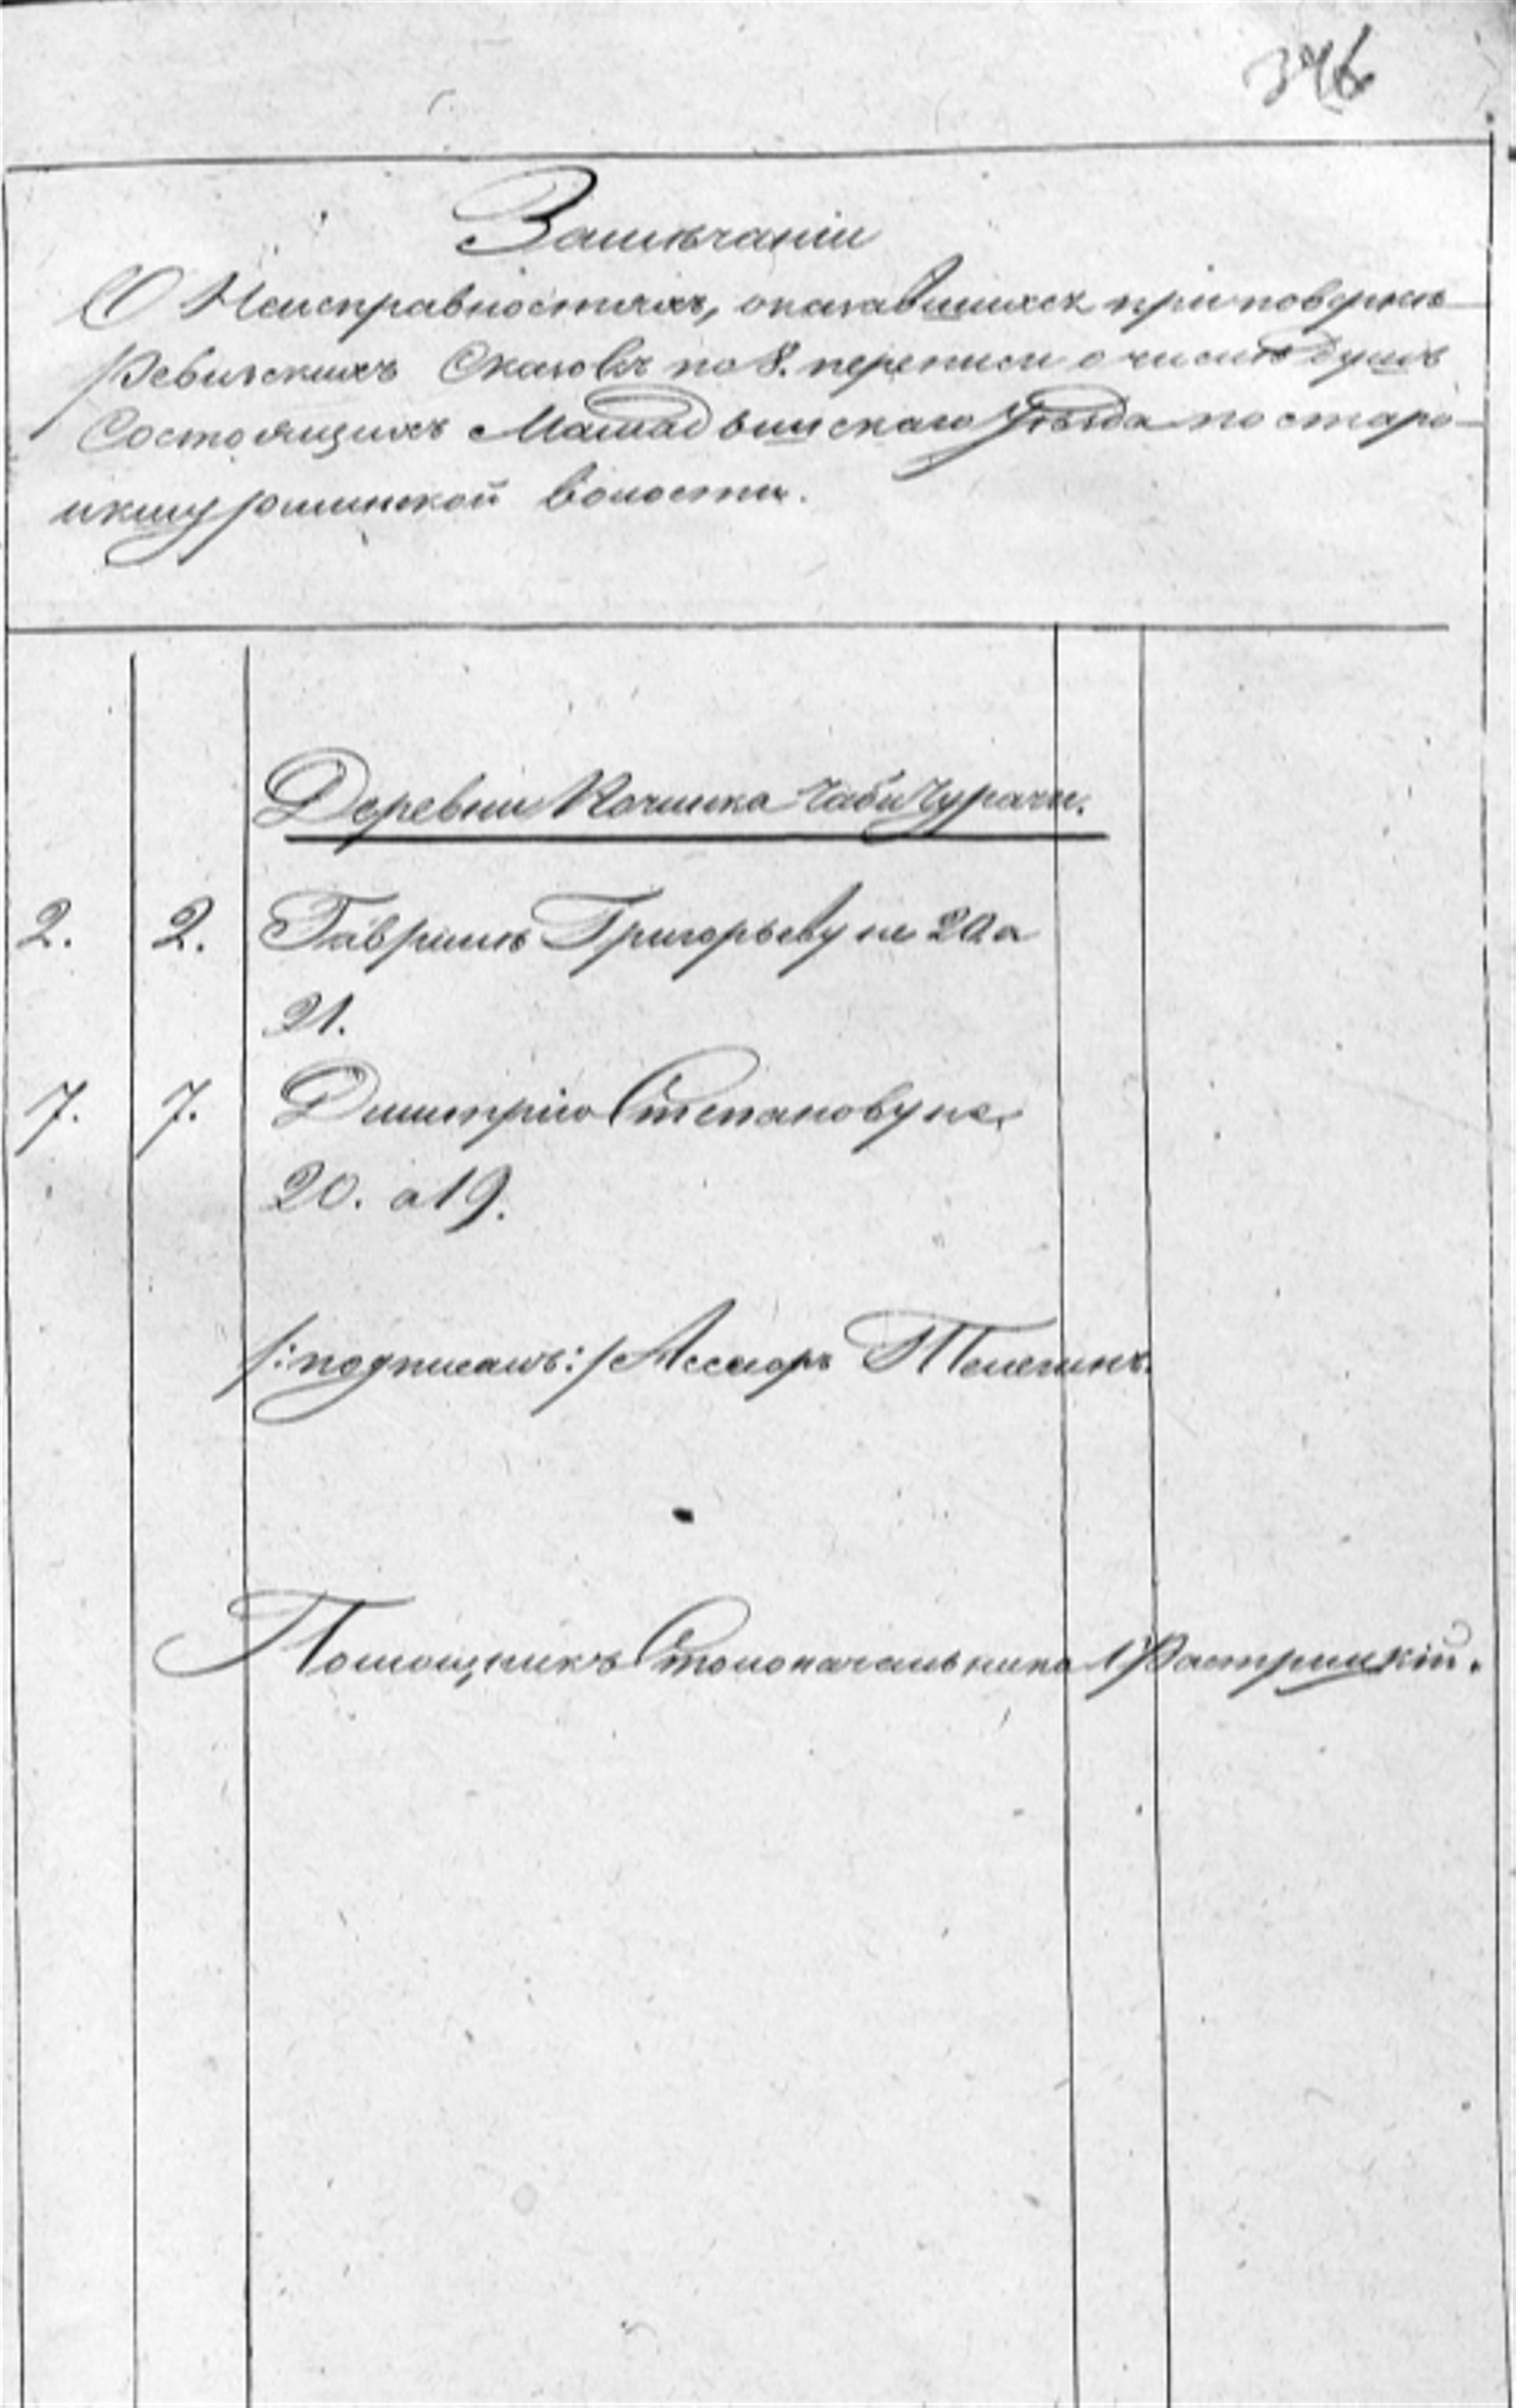 346
Замѣчаніи
О Неисправностяхъ, оказавшихся при повѣркѣ
Ревизскихъ Сказокъ по 8. переписи о числѣ душъ
Состоящихъ Малмыжскаго Уѣзда по старо-
икшурминской волости.
Деревни Починка Чабичурачи.
2. 2. Гаврилѣ Григорьеву не 20 а
21.
7. 7. Дмитрію Степанову не
20. а 19.
/:подписалъ:/ Ассесоръ Телегинъ.
Помощникъ Столоначальника